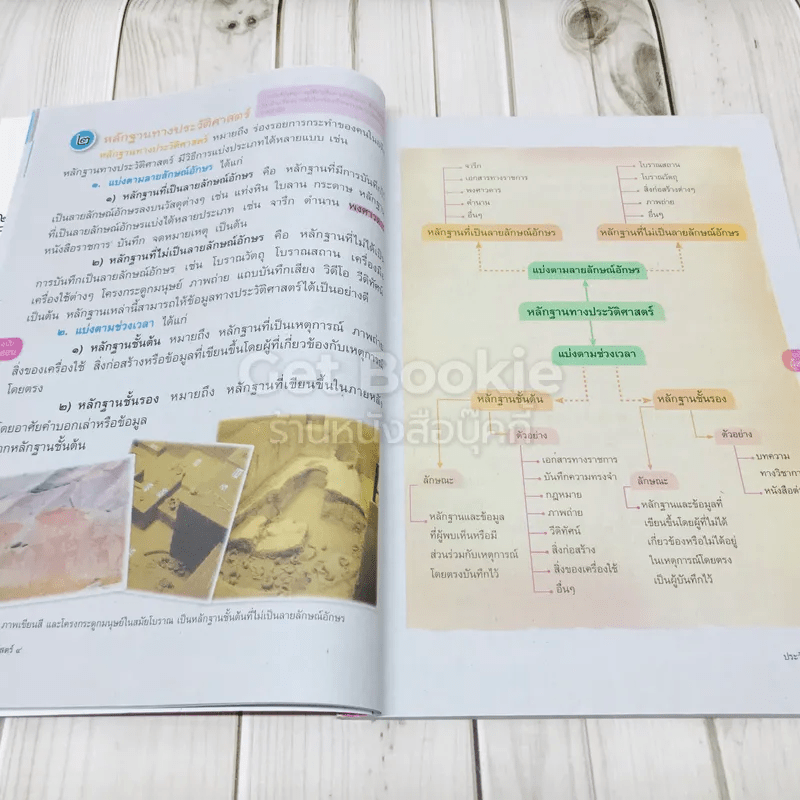 ๒ หลักฐานทางประวัติศาสตร์
หลักฐานทางประวัติศาสตร์ หมายถึง ร่องรอยการกระทำของคนใน
หลักฐานทางประวัติศาสตร์ มีวิธีการแบ่งประเภทได้หลายแบบ เช่น
๑. แบ่งตามลายลักษณ์อักษร ได้แก่
๑) หลักฐานที่เป็นลายลักษณ์อักษร คือ หลักฐานที่มีการบันทึก
เป็นลายลักษณ์อักษรลงบนวัสดุต่างๆ เช่น แท่งหิน ใบลาน กระดาษ หลักฐาน
ที่เป็นลายลักษณ์อักษรแบ่งได้หลายประเภท เช่น จารึก ตำนาน พงศาวดาร
หนังสือราชการ บันทึก จดหมายเหตุ เป็นต้น
๒) หลักฐานที่ไม่เป็นลายลักษณ์อักษร คือ หลักฐานที่ไม่ได้เป็น
การบันทึกเป็นลายลักษณ์อักษร เช่น โบราณวัตถุ โบราณสถาน เครื่องมือ
เครื่องใช้ต่างๆ โครงกระดูกมนุษย์ ภาพถ่าย แถบบันทึกเสียง วิดีโอ วีดิทัศน์
เป็นต้น หลักฐานเหล่านี้สามารถให้ข้อมูลทางประวัติศาสตร์ได้เป็นอย่างดี
๒. แบ่งตามช่วงเวลา ได้แก่
๑) หลักฐานชั้นต้น หมายถึง หลักฐานที่เป็นเหตุการณ์ ภาพถ่าย
สิ่งของเครื่องใช้ สิ่งก่อสร้างหรือข้อมูลที่เขียนขึ้นโดยผู้ที่เกี่ยวข้องกับเหตุการณ์
โดยตรง
๒) หลักฐานชั้นรอง หมายถึง หลักฐานที่เขียนขึ้นในภายหลัง
โดยอาศัยคำบอกเล่าหรือข้อมูล
จากหลักฐานชั้นต้น
ภาพเขียนสี และโครงกระดูกมนุษย์ในสมัยโบราณ เป็นหลักฐานชั้นต้นที่ไม่เป็นลายลักษณ์อักษร
จารึก
เอกสารทางราชการ
พงศาวดาร
ตำนาน
อื่นๆ
โบราณสถาน
โบราณวัตถุ
สิ่งก่อสร้างต่างๆ
ภาพถ่าย
อื่นๆ
หลักฐานที่เป็นลายลักษณ์อักษร
หลักฐานที่ไม่เป็นลายลักษณ์อักษร
แบ่งตามลายลักษณ์อักษร
หลักฐานทางประวัติศาสตร์
แบ่งตามช่วงเวลา
หลักฐานชั้นต้น
หลักฐานชั้นรอง
ลักษณะ
หลักฐานและข้อมูล
ที่ผู้พบเห็นหรือมี
ส่วนร่วมกับเหตุการณ์
โดยตรงบันทึกไว้
ตัวอย่าง
เอกสารทางราชการ
บันทึกความทรงจำ
กฎหมาย
ภาพถ่าย
วีดิทัศน์
สิ่งก่อสร้าง
สิ่งของเครื่องใช้
อื่นๆ
ลักษณะ
หลักฐานและข้อมูลที่
เขียนขึ้นโดยผู้ที่ไม่ได้
เกี่ยวข้องหรือไม่ได้อยู่
ในเหตุการณ์โดยตรง
เป็นผู้บันทึกไว้
ตัวอย่าง
บทความ
ทางวิชาการ
หนังสือ
Get Bookie
ร้านหนังสือบุ๊คกี้